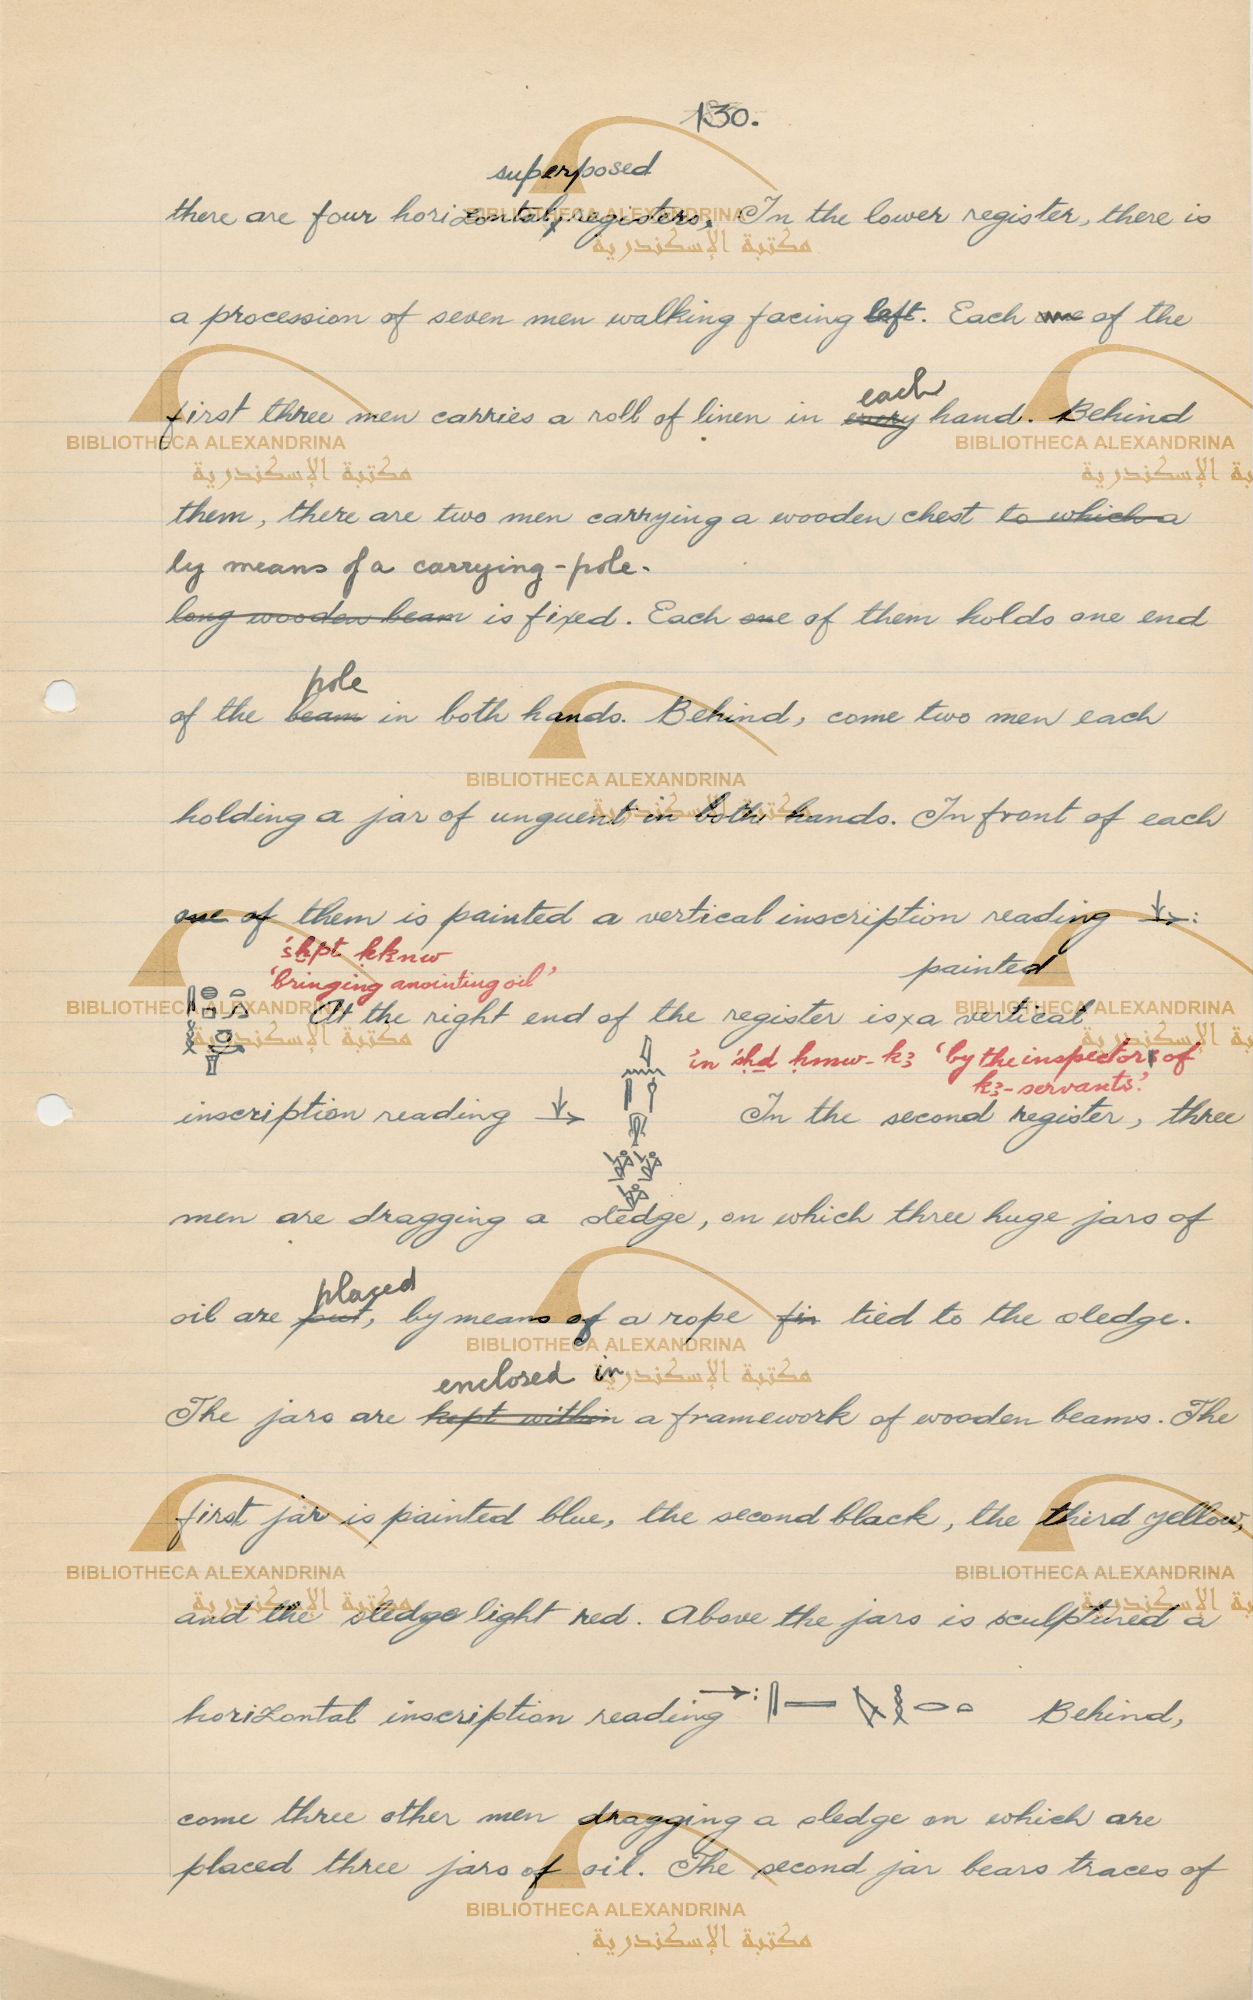 130.
superposed
there are four horizontal registers. In the lower register, there is
a procession of seven men walking facing left. Each one of the
each
first three men carries a roll of linen in every hand. Behind
them, there are two men carrying a wooden chest to which a
by means of a carrying-pole.
long wooden beam is fixed. Each one of them holds one end
pole
of the beam in both hands. Behind, come two men each
holding a jar of unguent in both hands. In front of each
one of them is painted a vertical inscription reading ↓→:
'bringing anointing oil'
painted
At the right end of the register is x a vertical
'by the inspectors of
k3-servants'.
inscription reading ↓→ In the second register, three
men are dragging a sledge, on which three huge jars of
placed
oil are put, by means of a rope fix tied to the sledge.
enclosed in
The jars are kept within a framework of wooden beams. The
first jar is painted blue, the second black, the third yellow,
and the sledge light red. Above the jars is sculptured a
horizontal inscription reading →: Behind,
come three other men dragging a sledge on which are
placed three jars of oil. The second jar bears traces of
BIBLIOTHECA ALEXANDRINA
مكتبة الإسكندرية